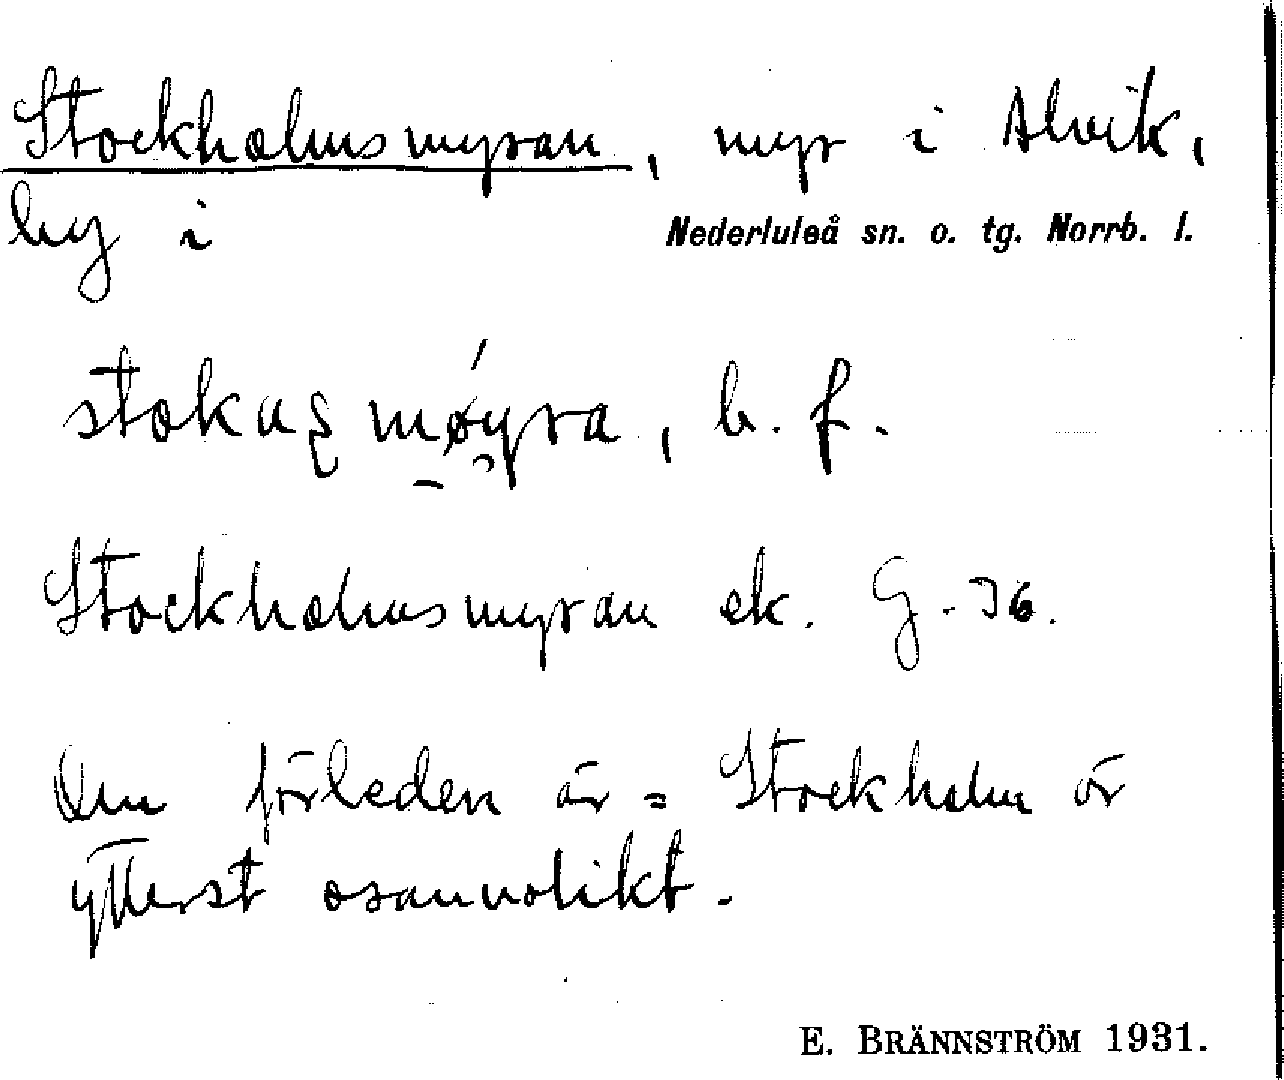 Stockholmsmyran, myr i Alvik,
by i Nederluleå sn. o. tg. Norrb. l.
møyra, b. f.
Stockholmsmyran ek. G.-36.
Om förleden är = Stockholm är
ytterst osannolikt.
E. BRÄNNSTRÖM 1931.